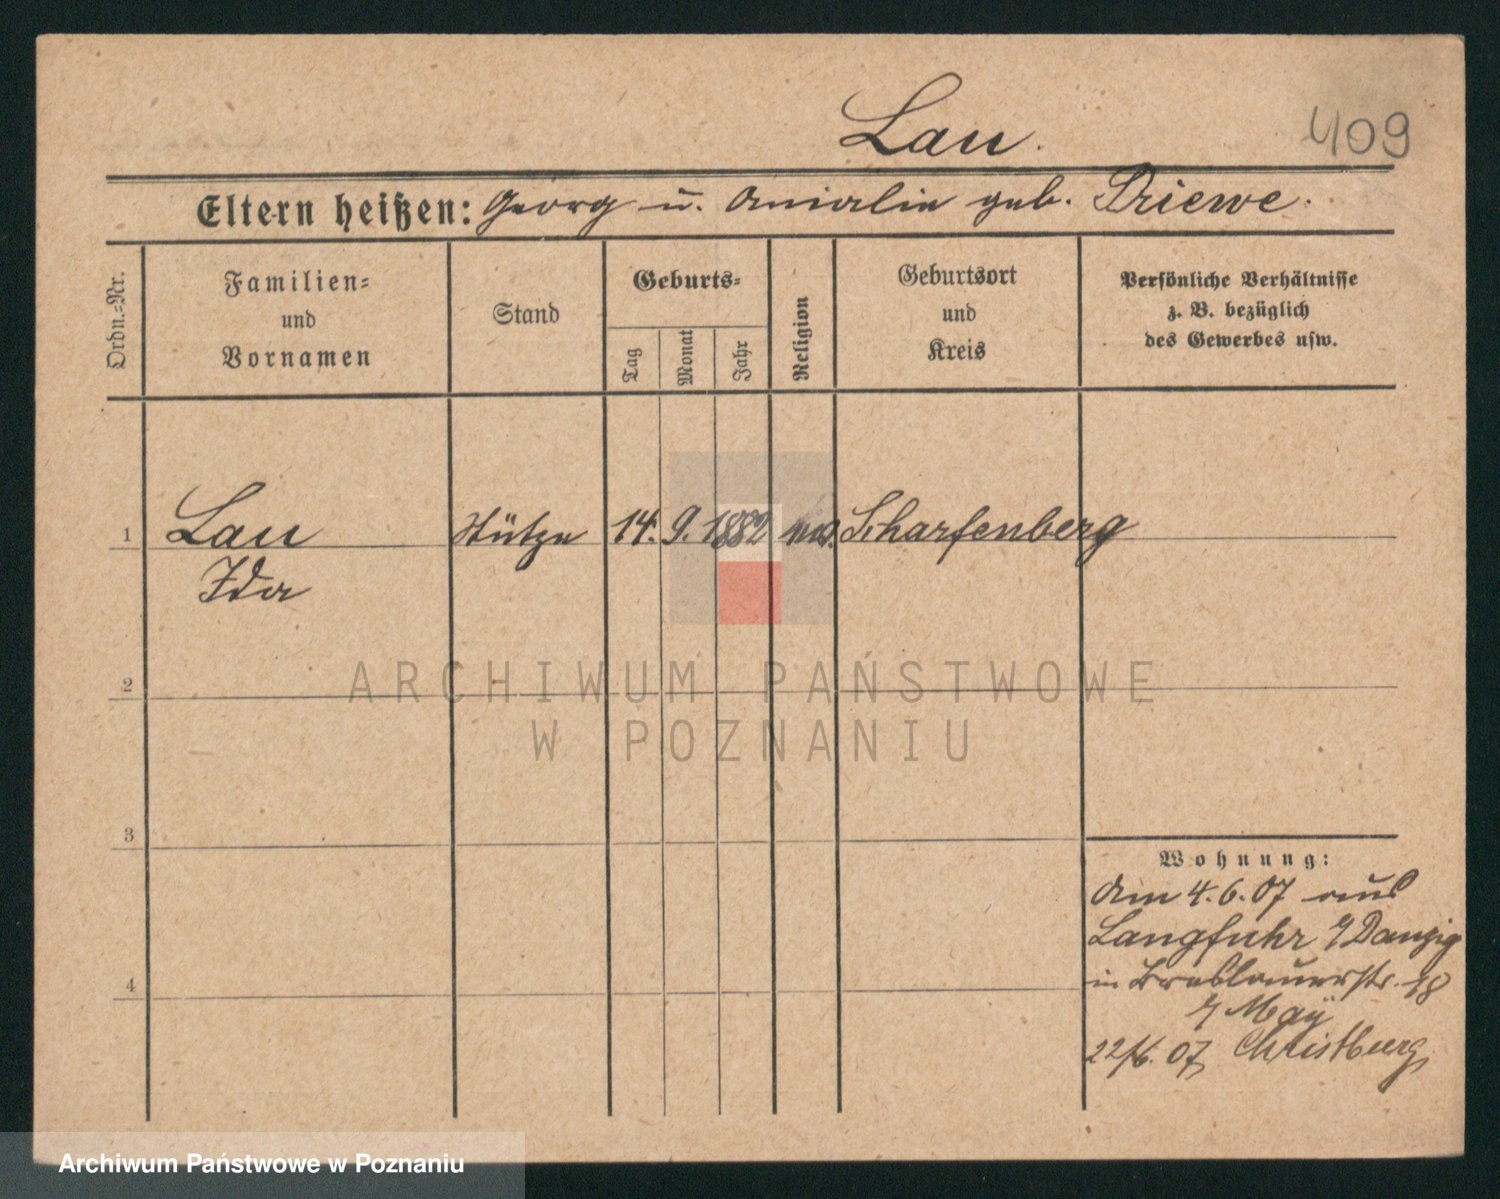 Lau.
409
Eltern heißen: Georg u. Amalie geb. Driewe.
Ordn.=Nr.
Familien=
und
Vornamen
Stand
Geburts=
Tag
Monat
Jahr
Religion
Geburtsort
und
Kreis
Persönliche Verhältnisse
z. B. bezüglich
des Gewerbes usw.
1 Lau Stütze 14. 9. 1882 Scharfenberg
Ida
2
3
4
Wohnung:
Am 4.6.07 aus
Langfuhr b/Danzig
in Breslauerstr. 18
b/ Maÿ
22/6. 07 Christburg
ARCHIWUM PAŃSTWOWE
W POZNANIU
Archiwum Państwowe w Poznaniu